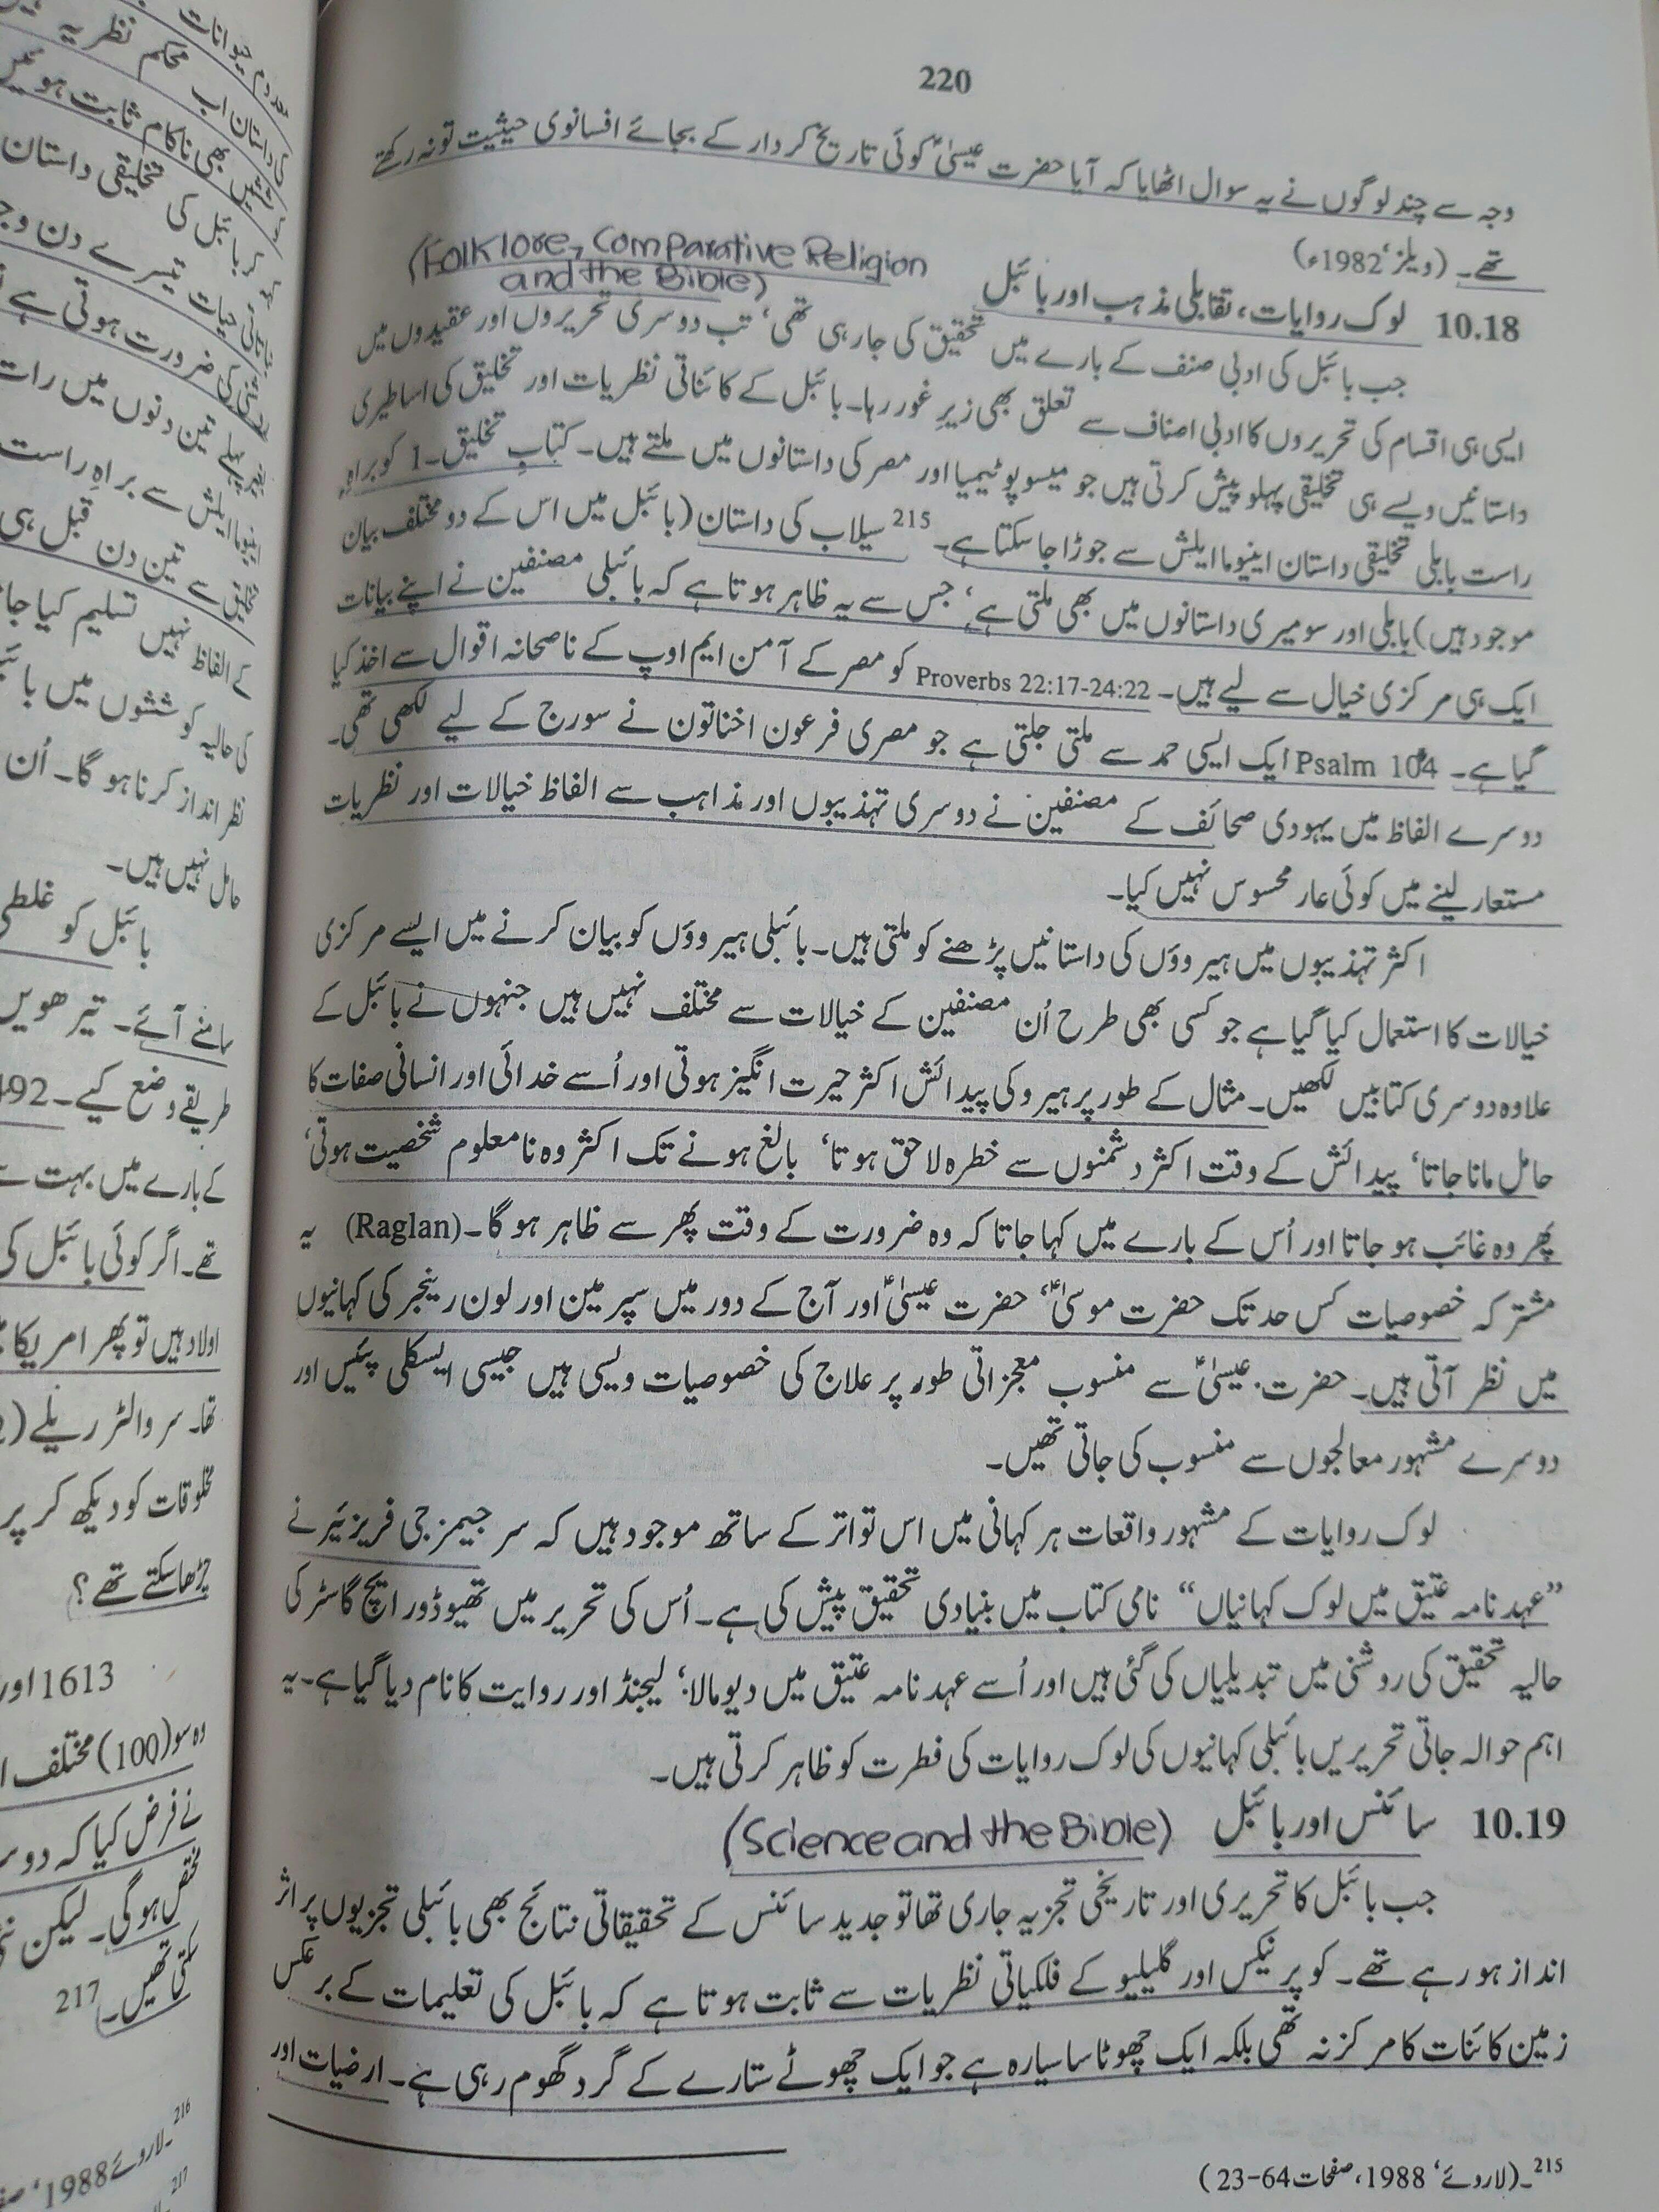 220
وجہ سے چند لوگوں نے یہ سوال اٹھایا کہ آیا حضرت عیسیٰؑ کوئی تاریخ کردار کے بجائے افسانوی حیثیت تو نہ رکھتے
تھے۔ (ویلز، 1982ء)
10.18 لوک روایات، تقابلی مذہب اور بائبل
(Folklore, Comparative Religion
and the Bible)
جب بائبل کی ادبی صنف کے بارے میں تحقیق کی جارہی تھی، تب دوسری تحریروں اور عقیدوں میں
ایسی ہی اقسام کی تحریروں کا ادبی اصناف سے تعلق بھی زیرِ غور رہا۔ بائبل کے کائناتی نظریات اور تخلیق کی اساطیری
داستانیں ویسے ہی تخلیقی پہلو پیش کرتی ہیں جو میسوپوٹیمیا اور مصر کی داستانوں میں ملتے ہیں۔ کتابِ تخلیق۔1 کو براہِ
راست بابلی تخلیقی داستان اینیوما ایلش سے جوڑا جاسکتا ہے۔215 سیلاب کی داستان (بائبل میں اس کے دو مختلف بیان
موجود ہیں) بابلی اور سومیری داستانوں میں بھی ملتی ہے، جس سے یہ ظاہر ہوتا ہے کہ بائبلی مصنفین نے اپنے بیانات
ایک ہی مرکزی خیال سے لیے ہیں۔ Proverbs 22:17-24:22 کو مصر کے آمن ایم اوپ کے ناصحانہ اقوال سے اخذ کیا
گیا ہے۔ Psalm 104 ایک ایسی حمد سے ملتی جلتی ہے جو مصری فرعون اخناتون نے سورج کے لیے لکھی تھی۔
دوسرے الفاظ میں یہودی صحائف کے مصنفین نے دوسری تہذیبوں اور مذاہب سے الفاظ خیالات اور نظریات
مستعار لینے میں کوئی عار محسوس نہیں کیا۔
اکثر تہذیبوں میں ہیروؤں کی داستانیں پڑھنے کو ملتی ہیں۔ بائبلی ہیروؤں کو بیان کرنے میں ایسے مرکزی
خیالات کا استعمال کیا گیا ہے جو کسی بھی طرح اُن مصنفین کے خیالات سے مختلف نہیں ہیں جنہوں نے بائبل کے
علاوہ دوسری کتابیں لکھیں۔ مثال کے طور پر ہیرو کی پیدائش اکثر حیرت انگیز ہوتی اور اُسے خدائی اور انسانی صفات کا
حامل مانا جاتا، پیدائش کے وقت اکثر دشمنوں سے خطرہ لاحق ہوتا، بالغ ہونے تک اکثر وہ نامعلوم شخصیت ہوتی،
پھر وہ غائب ہو جاتا اور اُس کے بارے میں کہا جاتا کہ وہ ضرورت کے وقت پھر سے ظاہر ہو گا۔ (Raglan) یہ
مشترکہ خصوصیات کس حد تک حضرت موسیٰؑ، حضرت عیسیٰؑ اور آج کے دور میں سپر مین اور لون رینجر کی کہانیوں
میں نظر آتی ہیں۔ حضرت عیسیٰؑ سے منسوب معجزاتی طور پر علاج کی خصوصیات ویسی ہیں جیسی ایسکلی پئیس اور
دوسرے مشہور معالجوں سے منسوب کی جاتی تھیں۔
لوک روایات کے مشہور واقعات ہر کہانی میں اس تواتر کے ساتھ موجود ہیں کہ سر جیمز جی فریزئیر نے
”عہد نامہ عتیق میں لوک کہانیاں“ نامی کتاب میں بنیادی تحقیق پیش کی ہے۔ اُس کی تحریر میں تھیوڈور ایچ گاسٹر کی
حالیہ تحقیق کی روشنی میں تبدیلیاں کی گئی ہیں اور اُسے عہد نامہ عتیق میں دیومالا، لیجنڈ اور روایت کا نام دیا گیا ہے۔ یہ
اہم حوالہ جاتی تحریریں بائبلی کہانیوں کی لوک روایات کی فطرت کو ظاہر کرتی ہیں۔
10.19 سائنس اور بائبل (Science and the Bible)
جب بائبل کا تحریری اور تاریخی تجزیہ جاری تھا تو جدید سائنس کے تحقیقاتی نتائج بھی بائبلی تجزیوں پر اثر
انداز ہو رہے تھے۔ کوپرنیکس اور گلیلیو کے فلکیاتی نظریات سے ثابت ہوتا ہے کہ بائبل کی تعلیمات کے برعکس
زمین کائنات کا مرکز نہ تھی بلکہ ایک چھوٹا سا سیارہ ہے جو ایک چھوٹے ستارے کے گرد گھوم رہی ہے۔ ارضیات اور
215۔ (لاروئے، 1988، صفحات 64-23)
محکم نظریہ
بھی ناکام ثابت ہوئیں
بائبل کی تخلیقی داستان
حیات تیسرے دن
کی ضرورت ہوتی ہے
پہلے تین دنوں میں رات
ایلش سے براہِ راست
سے تین دن قبل ہی
کے الفاظ نہیں تسلیم کیا جا
کی حالیہ کوششوں میں
نظر انداز کرنا ہو گا۔ اُن
حامل نہیں ہیں۔
بائبل کو غلطی
سامنے آئے۔ تیرھویں
طریقے وضع کیے۔ 492
کے بارے میں بہت سے
تھے۔ اگر کوئی بائبل کی
اولاد ہیں تو پھر امریکا
تھا۔ سر والٹر ریلے (
مخلوقات کو دیکھ کر پر
چڑھا سکتے تھے؟
1613 اور
وہ سو (100) مختلف
نے فرض کیا کہ دوسر
مختص ہو گی۔ لیکن
سکتی تھیں۔217
216۔ لاروئے 1988،
217